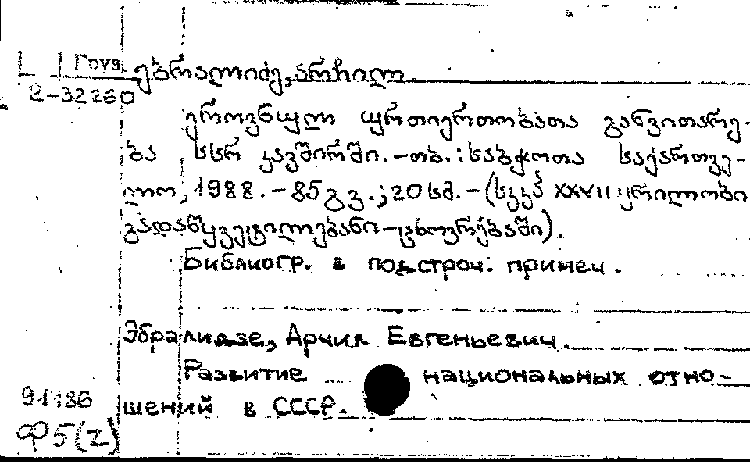 Груз. ებრალიძე, არჩილ.
2-32260
ეროვნულ ურთიერთობათა განვითარე-
ბა სსრ კავშირში. - თბ. : საბჭოთა საქართვე-
ლო, 1988. - 85 გვ.; 20 სმ. - (სკკპ XXVII ყრილობის
გადაწყვეტილებანი - ცხოვრებაში).
Библиогр. в подстроч. примеч.
Эбралидзе, Арчил Евгеньевич.
Развитие национальных отно-
шений в СССР.
91186
Ф5(2)